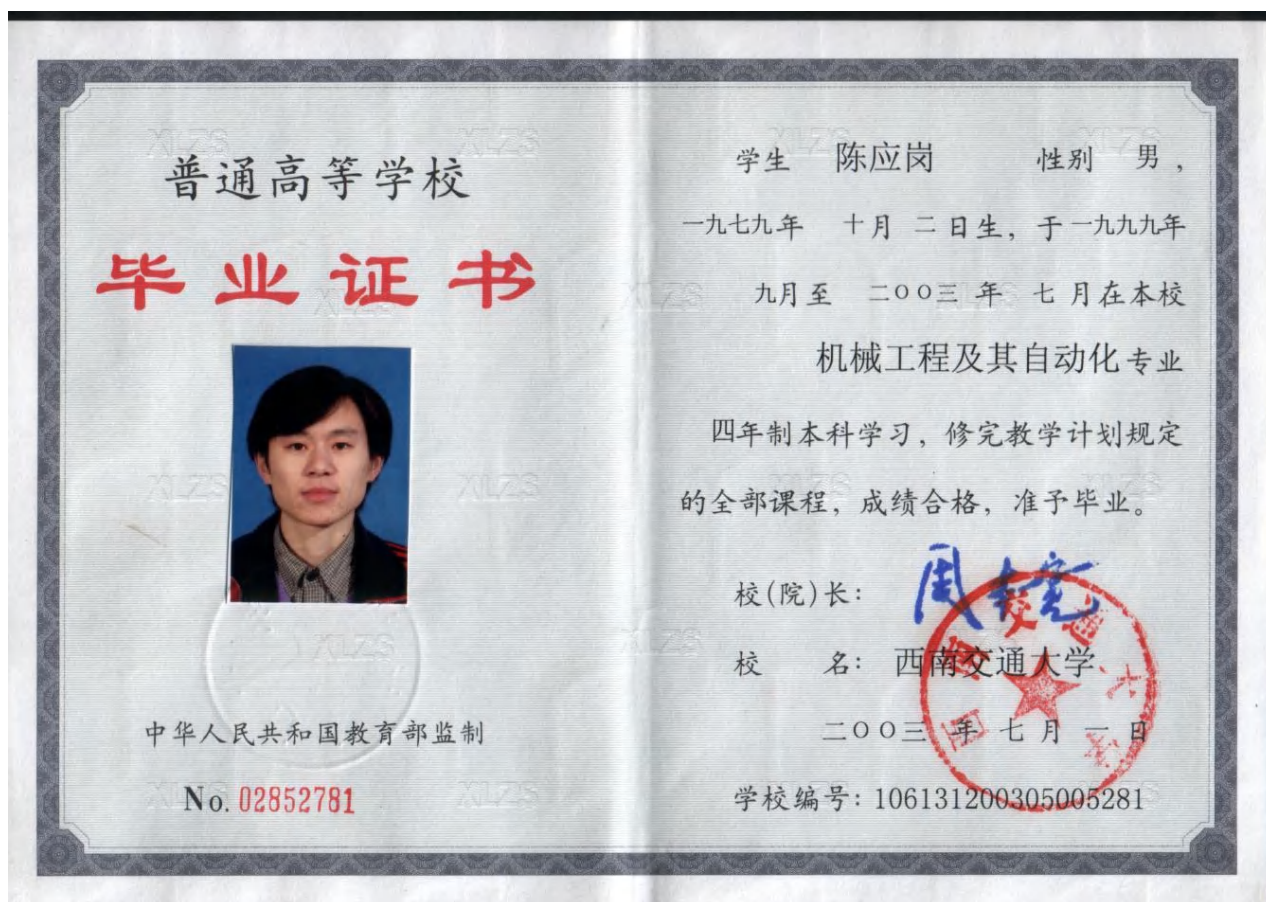 普通高等学校
毕业证书
中华人民共和国教育部监制
No. 02852781
学生 陈应岗 性别 男,
一九七九年 十月 二日生, 于一九九九年
九月至 二〇〇三年 七月在本校
机械工程及其自动化专业
四年制本科学习, 修完教学计划规定
的全部课程, 成绩合格, 准予毕业。
校(院)长:
校 名: 西南交通大学
二〇〇三年 七月 一日
学校编号: 106131200305005281
西南交通大学
XLZS